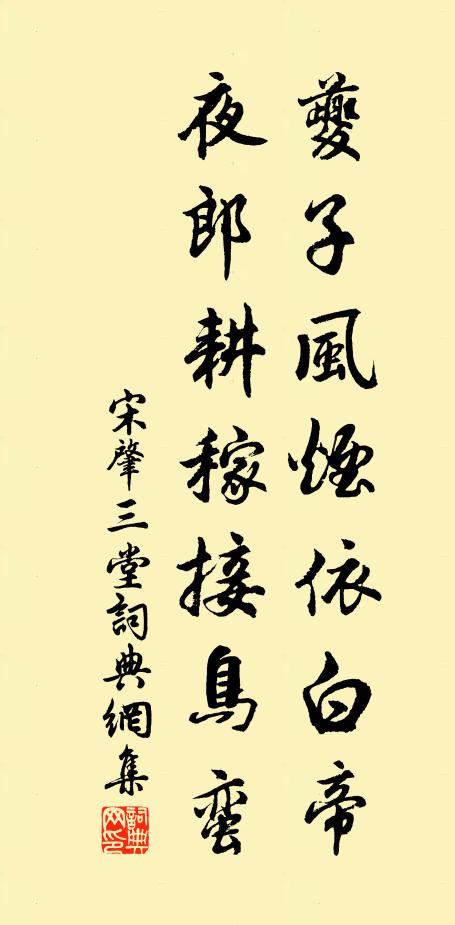 夔子風煙依白帝
夜郎耕稼接烏蠻
宋肇三堂詞典網集
詞典網印